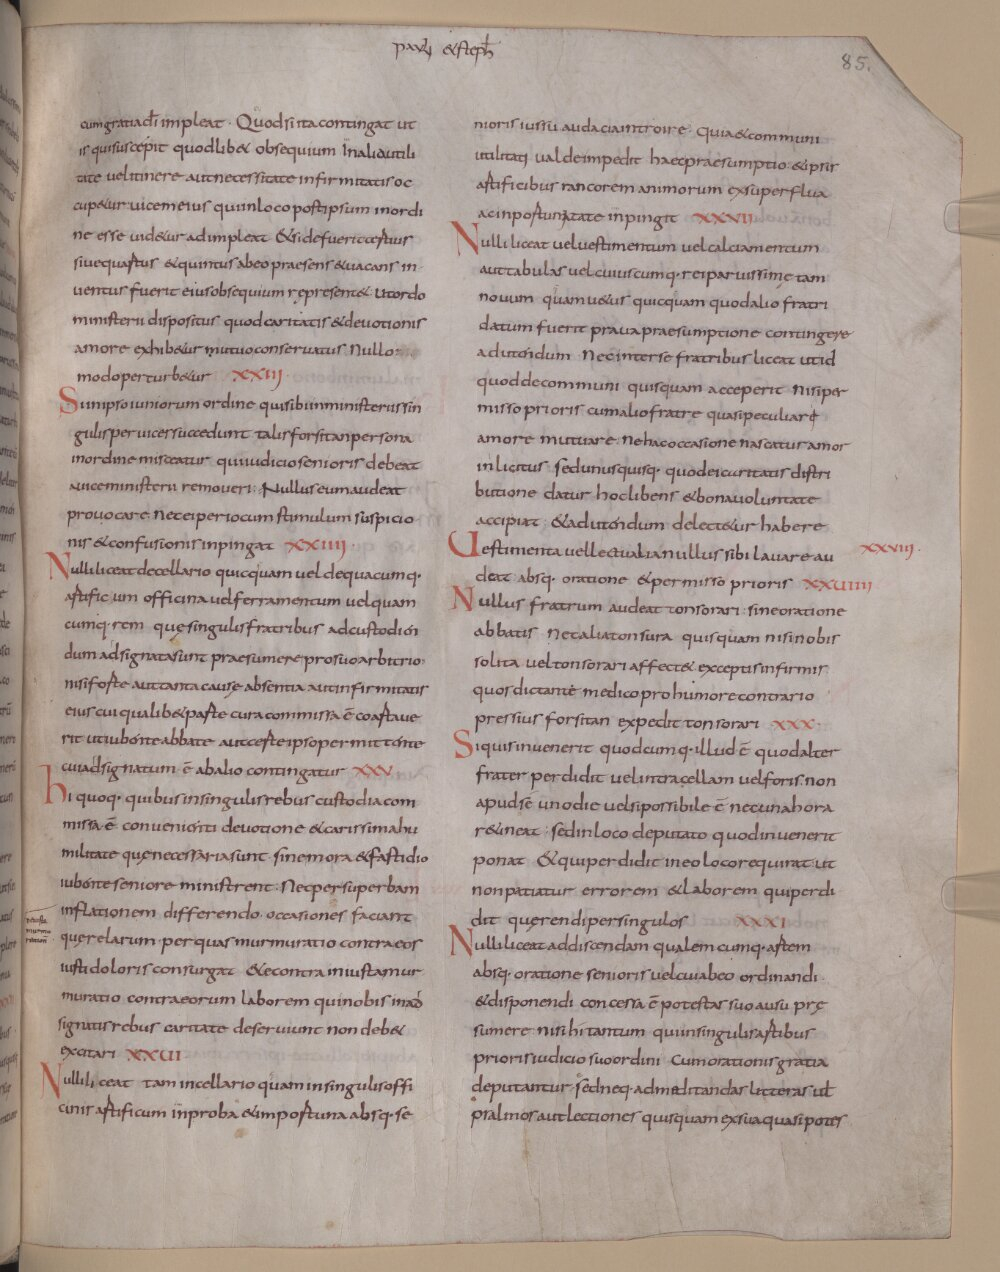 pauli & steph
85.
cum gratia di impleat. Quod si ita contingat ut
is qui suscepit quodlib& obsequium in alia utili
tate vel itinere aut necessitate infirmitatis oc
cup&ur vicem eius qui in loco post ipsum in ordi
ne esse vid&ur adimpleat &si defuerit tertius
sive quartus &quintus ab eo praesens &vacans in
ventus fuerit eius obsequium repraesent& ut ordo
ministerii dispositus quod caritatis &devotionis
amore exhib&ur mutuo conservatus nullo
modo perturb&ur XXIII.
Si in ipso iuniorum ordine qui sibi in ministeriis sin
gulis per vices succedunt talis forsitan persona
in ordine misceatur qui iudicio senioris debeat
a vice ministerii removeri. Nullus eum audeat
provocare nec ei per iocum stimulum suspicio
nis &confusionis inpingat XXIIII.
Nulli liceat de cellario quicquam vel de quacumq.
artificum officina vel ferramentum vel quam
cumq. rem que singulis fratribus ad custodien
dum adsignata sunt praesumere pro suo arbitrio.
nisi forte aut tanta cause absentia aut infirmitatis
eius cui qualib& parte cura commissa e coartave
rit ut iubente abbate aut certe ipso permittente
cui adsignatum e ab alio contingatur XXV
hi quoq. quibus in singulis rebus custodia com
missa e convenienti devotione &carissima hu
militate que necessaria sunt sine mora &fastidio
iubente seniore ministrent. Nec per superbam
inflationem differendo occasiones faciant
querelarum per quas murmuratio contra eos
iusti doloris consurgat &econtra iniusta mur
muratio contra eorum laborem qui nobis in ad
signatis rebus caritate deserviunt non deb&
excitari XXVI
Nulli liceat tam in cellario quam in singulis offi
cinis artificum inproba &importuna absq. se
nioris iussu audacia introire. Quia &communi
utilitati valde impedit haec praesumptio &ipsis
artificibus rancorem animorum ex superflua
ac inportunitate inpingit XXVII
Nulli liceat vel vestimentum vel calciamentum
aut tabulas vel cuiuscumq. rei parvissime tam
novum quam v&us quicquam quod alio fratri
datum fuerit prava praesumptione contingere
ad utendum Nec inter se fratribus liceat ut id
quod de communi quisquam acceperit nisi per
misso prioris cum alio fratre quasi peculiare
amore mutuare. ne hac occasione nascatur amor
inlicitus sed unusquisq. quod ei caritatis distri
butione datur hoc libens &bona voluntate
accipiat &ad utendum delect&ur habere
Vestimenta vel lectualia nullus sibi lavare au XXVIII.
deat absq. oratione &permisso prioris XXVIIII
Nullus fratrum audeat tonsorari sine oratione
abbatis Nec alia tonsura quisquam nisi nobis
solita vel tonsorari affect& exceptis infirmis
quos dictante medico pro humore contrario
pressius forsitan expedit tonsorari XXX.
Si quis invenerit quodcumq. illud e quod alter
frater perdidit vel intra cellam vel foris non
apud se uno die vel si possibile e nec una hora
r&ineat. sed in loco deputato quod invenerit
ponat &qui perdidit in eo loco requirat ut
non patiatur errorem &laborem qui perdi
dit querendi per singulos XXXI
Nulli liceat ad discendam qualemcumq. artem
absq. oratione senioris vel cui ab eo ordinandi
&disponendi concessa e potestas suo ausu pre
sumere nisi hi tantum qui in singulis artibus
prioris iudicio suo ordini cum orationis gratia
deputantur. sed neq. ad meditandas litteras vel
psalmos aut lectiones quisquam ex sua quasi potes